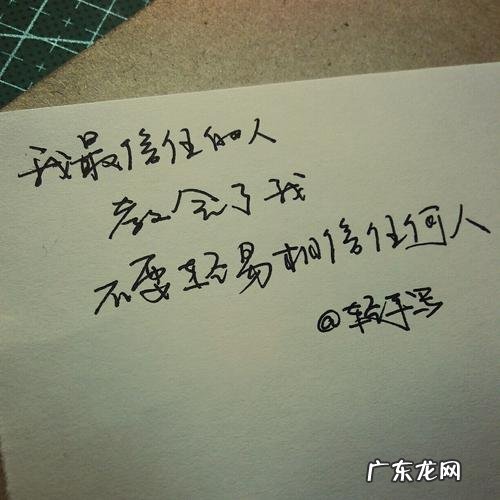 我最信任的人
教会了我
不要轻易相信任何人
@轻手写
广东龙网